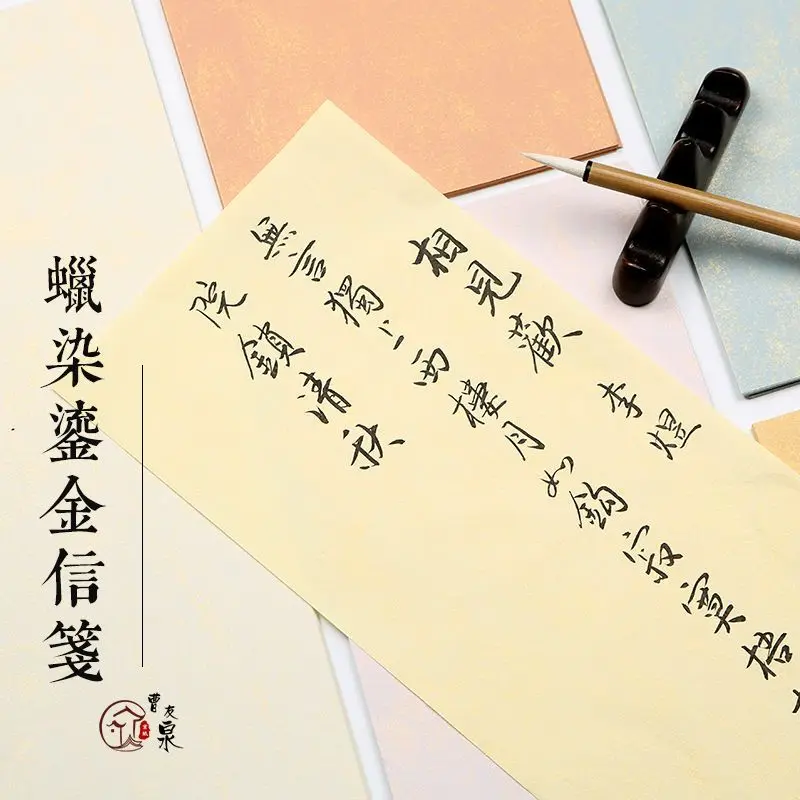 蠟染鎏金信箋
曹友泉
相見歡 李煜
無言獨上西樓月如鈎寂寞梧
院鎖清秋